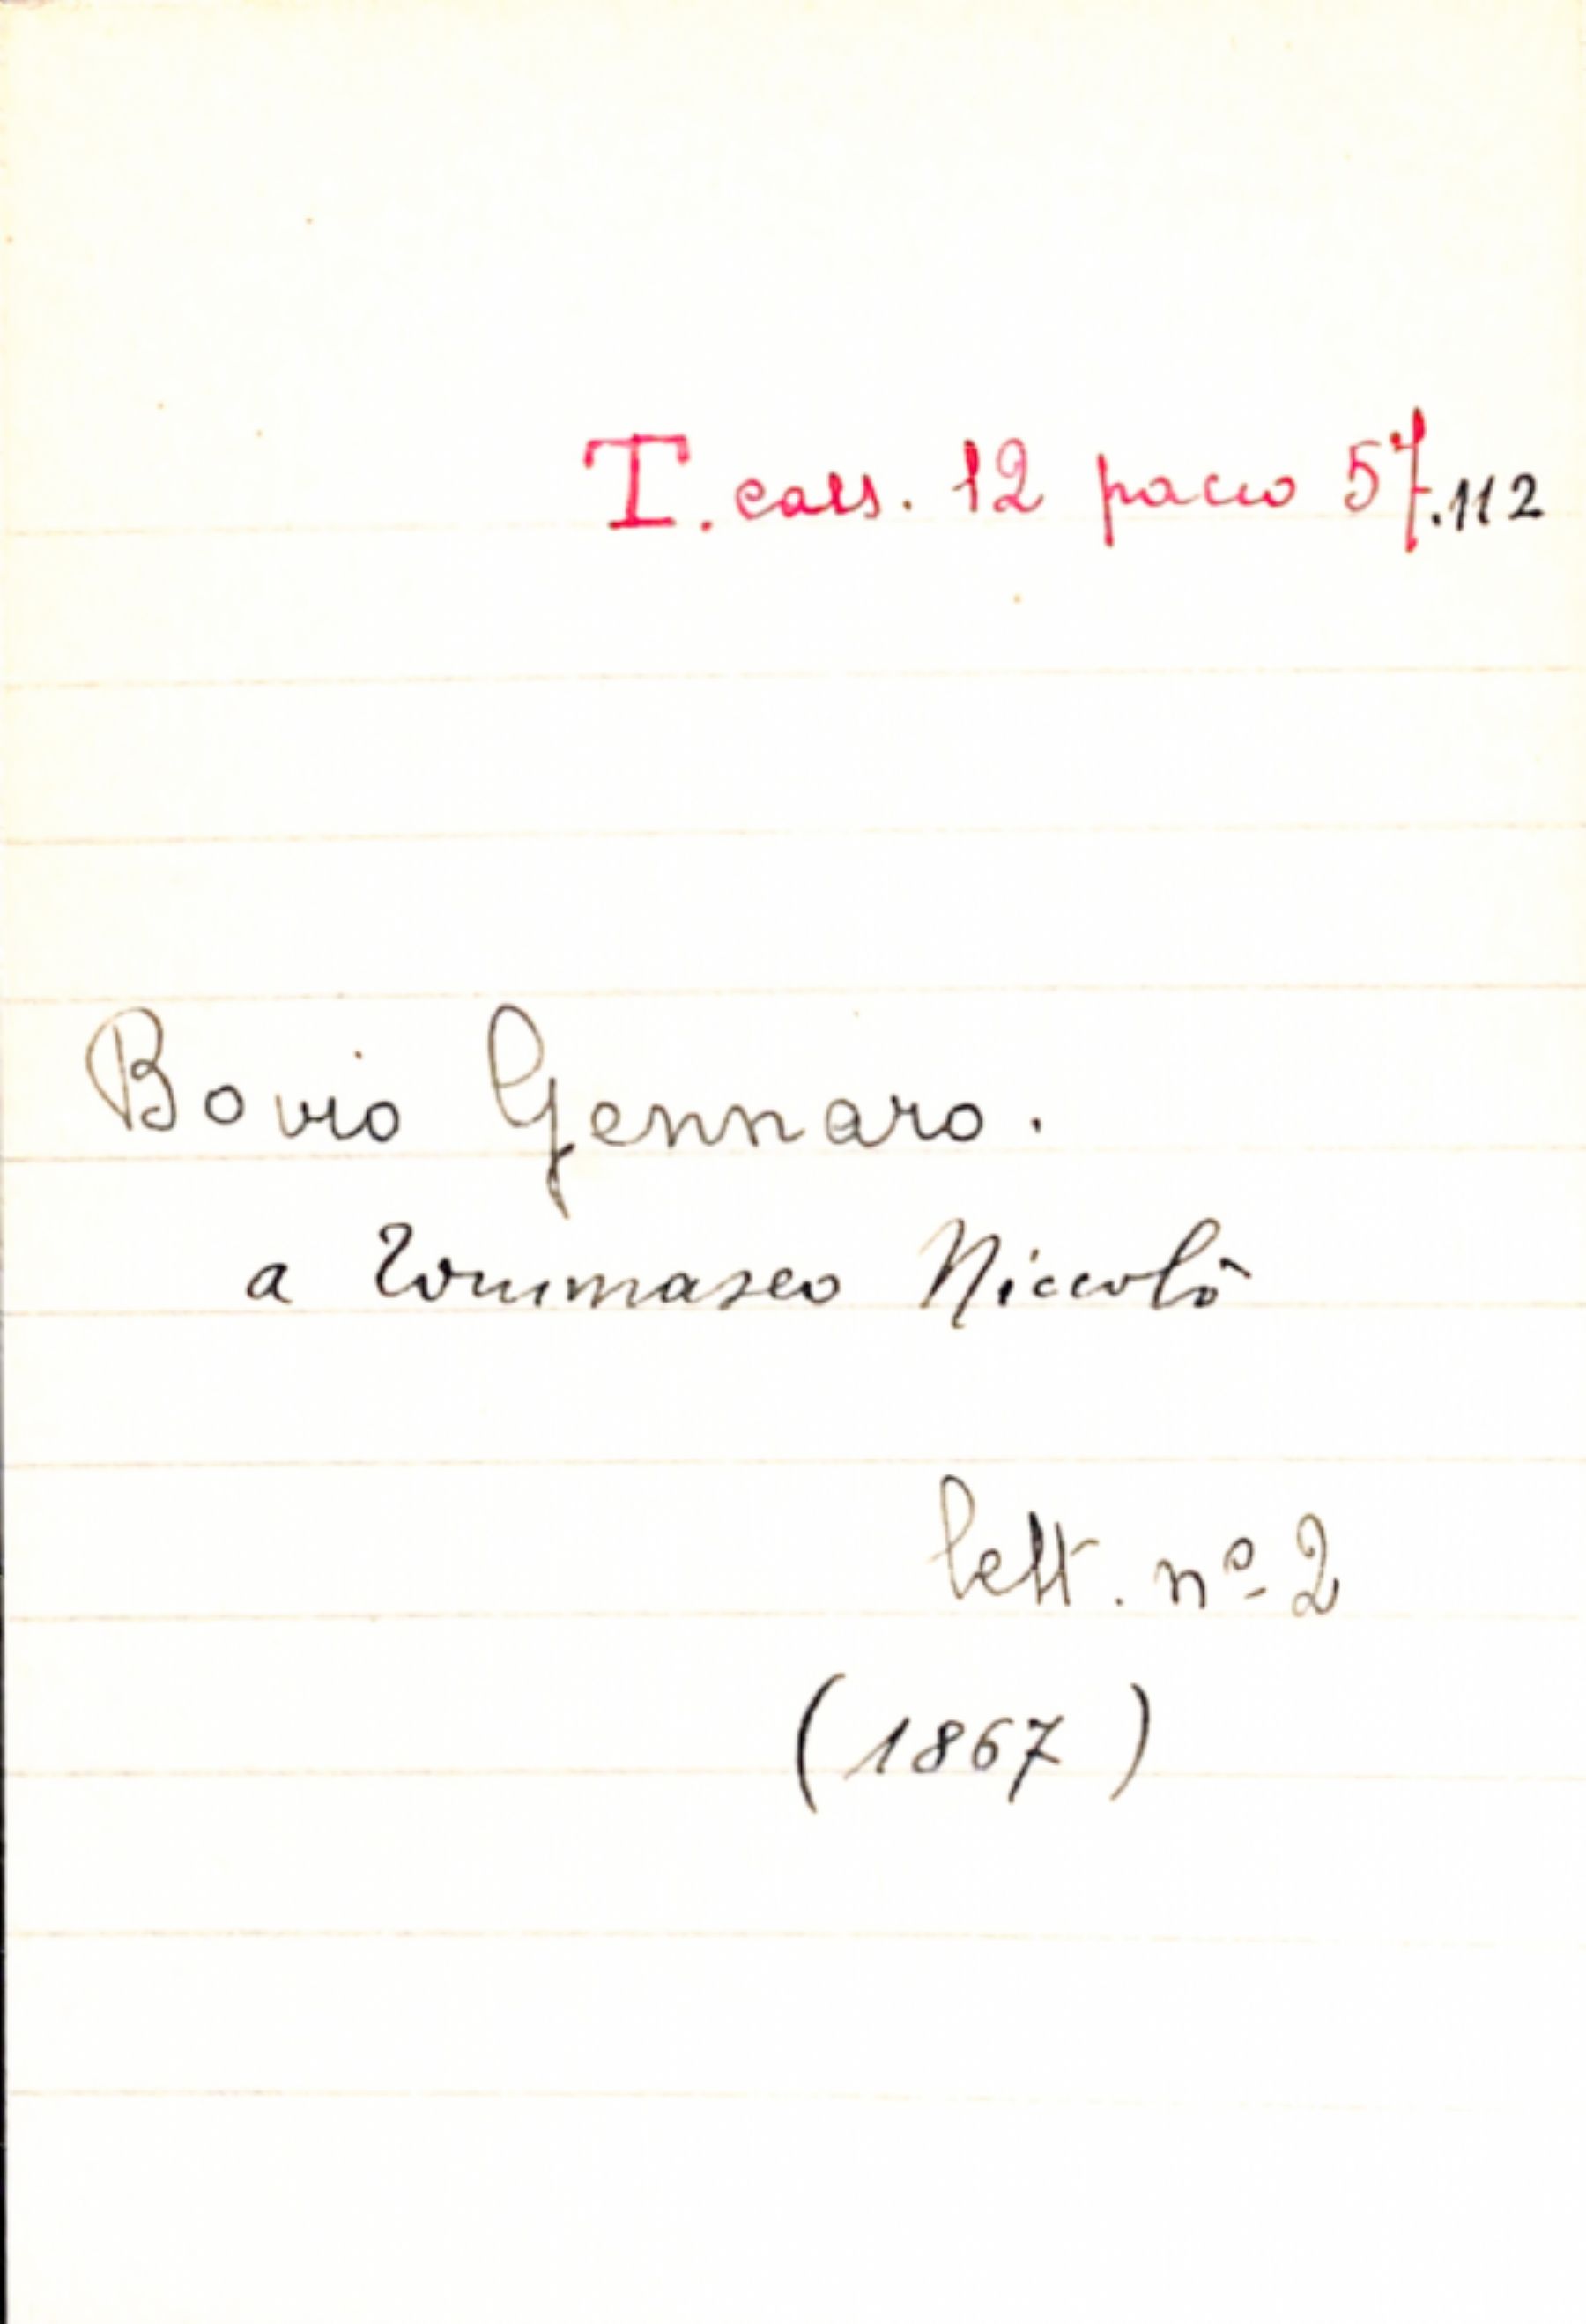 T. cass. 12 pacco 57.112
Bovio Gennaro.
a Tommaseo Niccolò
lett. nº 2
(1867)